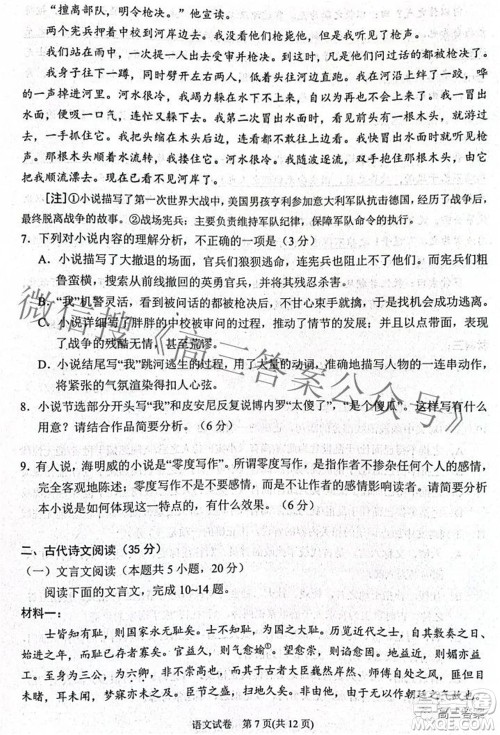 “擅离部队，明令枪决。”他宣读。
两个宪兵押着中校到河岸边去。我没看见他们枪毙他，但我听见了枪声。
我们站在雨中，一次提一人出去受审并枪决。到这时，凡是问过话的都被枪决了。
我往岸上一蹲，同时劈开左右两人，低着头往河边直跑。我在河沿上绊了一下，哗
的一声掉进河里。河水很冷，我竭力躲在水下不上来，一直到我以为再也不能上来了。
水面，便吸一口气，连忙又躲下去。我第二次冒出水面时，看见前面有一根木头，就
游过去，一手抓住它。我把头缩在木头后边，连看都不敢往上边看。我逃跑时和第一次
冒出水面时，他们都开枪。我快冒出水面时就听见枪声。现在却没有人打枪。我抱着
那根木头，顺着水转。河水冷得很。我随着水流迅速漂流，双手抱住那根木头，任它
把我顺流漂去。现在已看不见河岸了。
[注]①小说描写了第一次世界大战中，美国男孩亨利参加意大利军队抗击德国，历经战争，
最终脱离战争的故事。②战场宪兵：主要负责维持军队纪律，保障军队命令的执行。
7．下列对小说内容的理解分析，不正确的一项是（3 分）
A．小说描写了大撤退的场面，官兵们狼狈逃命，连宪兵也人心惶惶。然而宪兵们粗
鲁蛮横，搜索从前线撤回的英勇官兵，并将其残忍杀害。
B．“我”机警灵活，看到被问话的都被枪决后，不甘心束手就擒，于是找机会成功逃离。
C．小说详细写了胖胖的中校被审问的过程，推动了情节的发展；并以小见大，表现
了战争的残酷无情，甚至荒诞。
D．小说结尾写“我”跳河逃生的过程，具体细致，通过描写人物的一连串动作，
将紧张的气氛渲染得扣人心弦。
8．小说节选部分开头写“我”和皮安尼反复说博内罗“太傻了”，“是个傻瓜”。这样写有什么
用意？请结合作品简要分析。（6 分）
9．有人说，海明威的小说是“零度写作”。所谓零度写作，是指作者不掺杂任何个人的感情，
完全客观地陈述；零度写作不是不要感情，而是不让作者的感情影响读者。请简要分析
本小说是如何体现这一特点的，有什么效果。（6 分）
二、古代诗文阅读（35 分）
（一）文言文阅读（本题共 5 小题，20 分）
阅读下面的文言文，完成 10~14 题。
材料一：
士皆知有耻，则国家永无耻矣。士不知耻，为国之大耻。历览近代之士，自其敷奏之日、
始进之年，而耻已存者寡矣！官益久，则气愈媮①。望愈崇，则谄愈固。地益近，则媚亦
益工。至身为三公，为六卿，非不崇高也，而其于古者大臣巍然岸然师傅自处之风，匪但目
未睹，耳未闻，梦寐亦未之及。臣节之盛，扫地尽矣。非由他，由于无以作朝廷之气故也。
语文试卷　第 7 页(共 12 页)
微信搜《高三答案公众号》
高三答案